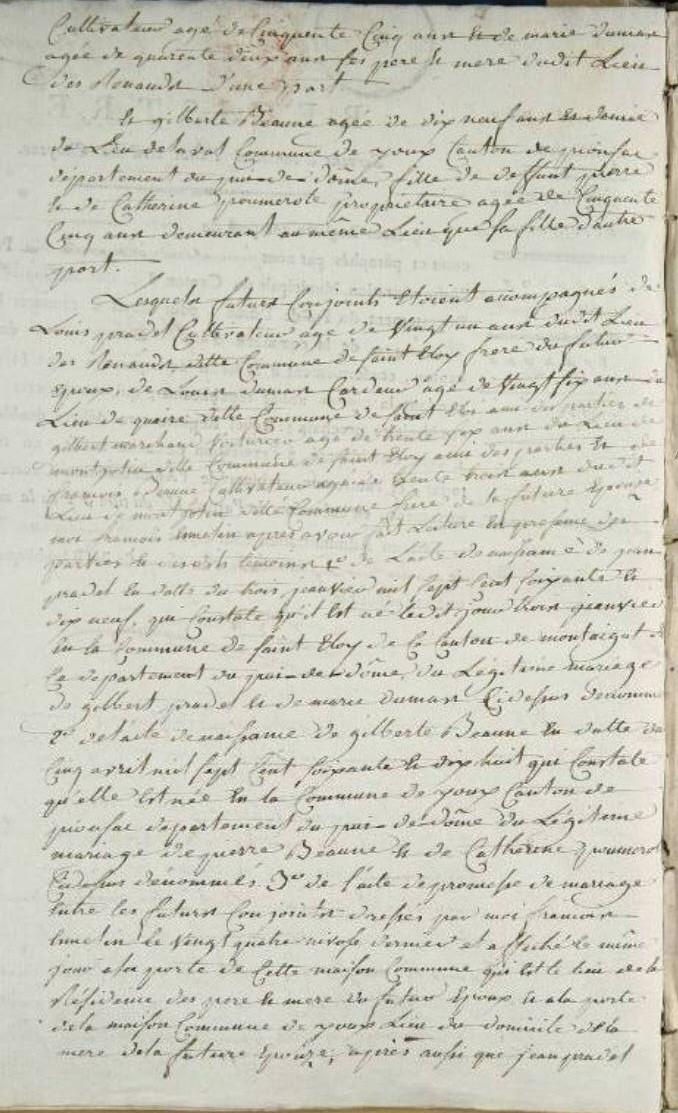 Cultivateur agé de Cinquente Cinq ans et de marie dumas
agée de quarente deux ans ses pere et mere dudit Lieu
des Renauds d'une part
et gilberte Beaune agée de dix neuf ans
Lieu delaval Commune de youx Canton de pionsac
département du pui-de-dôme, fille de deffunt pierre
et de Catherine poumerole propriétaire agée de Cinquente
Cinq ans demeurant au même Lieu que sa fille d'autre
part.
Lesquels futurs Conjoints étoient accompagnés de
Louis pradel Cultivateur agé de Vingt un ans dudit Lieu
des Renauds ditte Commune de saint Eloy frere du futur
epoux, de Louis dumas Cardeur agé de Vingt six ans du
Lieu de ditte Commune de saint Eloy ami des parties de
gilbert marchand Voiturier agé de trente six ans du Lieu de
ditte Commune de saint Eloy ami des parties et de
francois Beaune Cultivateur agé de trente trois ans dudit
Lieu de ditte Commune frere de la future Epouse
moi francois après avoir fait Lecture en presence des
parties et desdits temoins 1° de L'acte de naissance de jean
pradel en datte du trois janvier mil sept Cent soixante et
dix neuf, qui Constate qu'il Est né ledit jour trois janvier
En la Commune de saint Eloy de Ce Canton de montaigut
departement du pui-de-dôme, du Légitime mariage
de gilbert pradel et de marie dumas Cidessus denommés
2° de l'acte de naissance de gilberte Beaune En datte du
Cinq avril mil sept Cent soixante et dix huit qui Constate
qu'elle Est née En la Commune de youx Canton de
pionsac departement du pui-de-dôme du Légitime
mariage de pierre Beaune et de Catherine poumerol
Cidessus dénommés. 3° de l'acte de promesse de mariage
Entre les futurs Conjoints dressés par moi francois
le Vingt quatre nivose dernier et affiché le même
jour a la porte de Cette maison Commune qui Est le lieu de la
Résidence des pere et mere du futur Epoux et a la porte
de la maison Commune de youx Lieu du domicile de la
mere de la future Epouze, après aussi que jean pradel